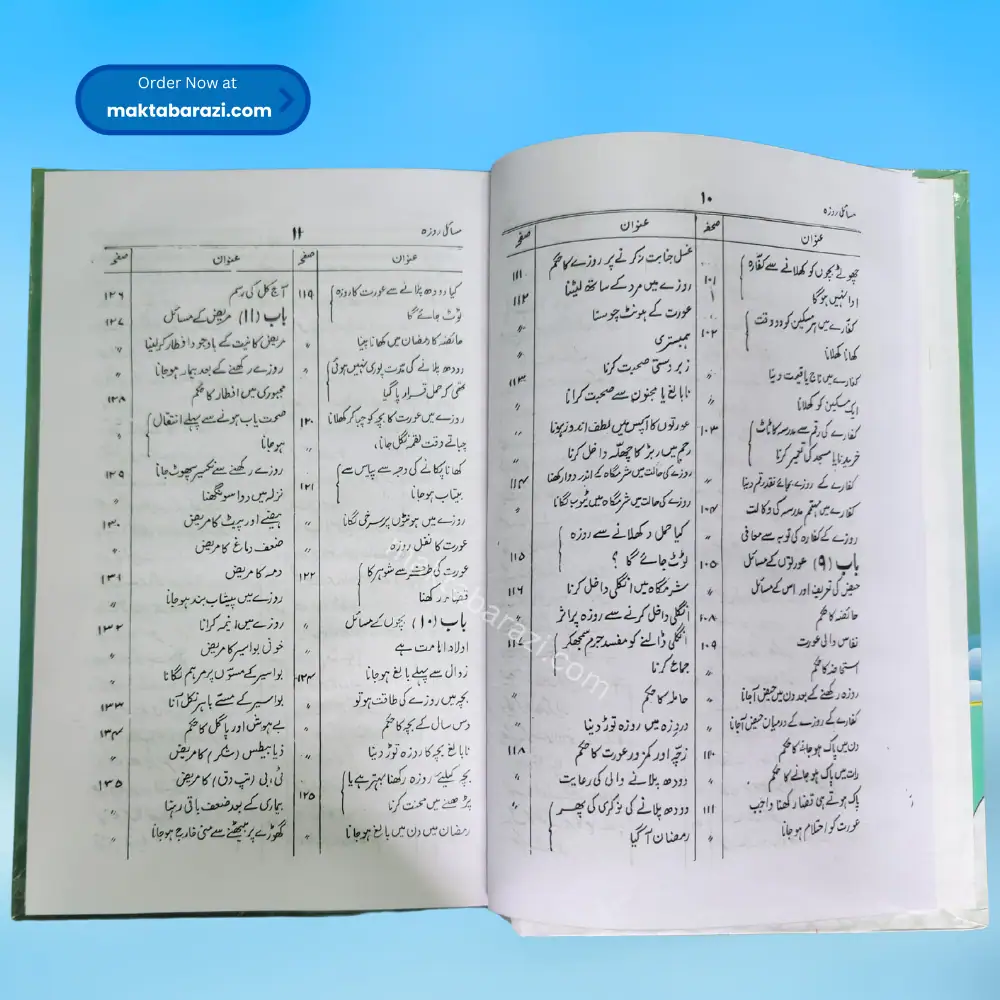 Order Now at
maktabarazi.com
۱۰
مسائل روزہ
عنوان
صفحہ
چھوٹے بچوں کو کھلانے سے کفارہ
ادا نہیں ہوگا
۱۰۱
کفارے میں ہر مسکین کو دو وقت
کھانا کھلانا
۱۰۲
کفارے میں اناج یا قیمت دینا
〃
ایک مسکین کو کھلانا
〃
کفارے کی رقم سے مدرسہ کا ٹاٹ
خریدنا یا مسجد کی تعمیر کرنا
۱۰۳
کفارے کے روزے بجائے نقد رقم دینا
〃
کفارے میں مہتمم مدرسہ کی وکالت
۱۰۴
روزے کے کفارہ کی توبہ سے معافی
〃
باب (۹) عورتوں کے مسائل
۱۰۵
حیض کی تعریف اور اس کے مسائل
〃
حائضہ کا حکم
۱۰۸
نفاس والی عورت
۱۰۹
استحاضہ کا حکم
〃
روزہ رکھنے کے بعد دن میں حیض آجانا
〃
کفارے کے روزے کے درمیان حیض آجانا
〃
دن میں پاک ہو جانے کا حکم
۱۱۰
رات میں پاک ہو جانے کا حکم
〃
پاک ہوتے ہی قضا رکھنا واجب
۱۱۱
عورت کو احتلام ہو جانا
〃
عنوان
صفحہ
غسل جنابت نہ کرنے پر روزے کا حکم
۱۱۱
روزے میں مرد کے ساتھ لیٹنا
۱۱۲
عورت کے ہونٹ چوسنا
〃
ہمبستری
〃
زبردستی صحبت کرنا
۱۱۳
نابالغ یا مجنون سے صحبت کرانا
〃
عورتوں کا آپس میں لطف اندوز ہونا
〃
رحم میں ربڑ کا چھلّہ داخل کرنا
〃
روزے کی حالت میں شرمگاہ کے اندر دوا رکھنا
۱۱۴
روزے کی حالت میں شرمگاہ میں ٹیوب لگانا
〃
کیا حمل دکھلانے سے روزہ
ٹوٹ جائے گا ؟
۱۱۵
شرمگاہ میں انگلی داخل کرنا
۱۱۶
انگلی داخل کرنے سے روزہ پر اثر
〃
انگلی ڈالنے کو مفسد جرم سمجھکر
جماع کرنا
۱۱۷
حاملہ کا حکم
〃
دردِزہ میں روزہ توڑ دینا
〃
زچّہ اور کمزور عورت کا حکم
۱۱۸
دودھ پلانے والی کی رعایت
〃
دودھ پلانے کی نوکری کی پھر
رمضان آگیا
〃
۱۱
مسائل روزہ
عنوان
صفحہ
کیا دودھ پلانے سے عورت کا روزہ
ٹوٹ جائے گا
۱۱۹
حائضہ کا رمضان میں کھانا پینا
〃
دودھ پلانے کی مدت پوری نہیں ہوئی
تھی کہ حمل قرار پا گیا
〃
روزے میں عورت کا بچہ کو چبا کر کھلانا
۱۲۰
چباتے وقت لقمہ نگل جانا
〃
کھانا پکانے کی وجہ سے پیاس سے
بیتاب ہو جانا
۱۲۱
روزے میں ہونٹوں پر سرخی لگانا
〃
عورت کا نفل روزہ
〃
عورت کی طرف سے شوہر کا
قضا رکھنا
۱۲۲
باب (۱۰) بچوں کے مسائل
〃
اولاد امانت ہے
〃
زوال سے پہلے بالغ ہو جانا
۱۲۴
بچہ میں روزے کی طاقت ہو تو
〃
دس سال کے بچہ کا حکم
〃
نابالغ بچہ کا روزہ توڑ دینا
〃
بچہ کیلئے روزہ رکھنا بہتر ہے یا
پڑھنے میں محنت کرنا
۱۲۵
رمضان میں دن میں بالغ ہو جانا
〃
عنوان
صفحہ
آج کل کی رسم
۱۲۶
باب (۱۱) مریض کے مسائل
۱۲۷
مریض کا نیت کے باوجود افطار کر لینا
〃
روزے رکھنے کے بعد بیمار ہو جانا
〃
مجبوری میں افطار کا حکم
۱۲۸
صحت یاب ہونے سے پہلے انتقال
ہو جانا
〃
روزے رکھنے سے نکسیر پھوٹ جانا
۱۲۹
نزلہ میں دوا سونگھنا
〃
ہیضے اور پیٹ کا مریض
۱۳۰
ضعف دماغ کا مریض
〃
دمہ کا مریض
۱۳۱
روزے میں پیشاب بند ہو جانا
〃
روزے میں انیمہ کرانا
۱۳۲
خونی بواسیر کا مریض
〃
بواسیر کے مسّوں پر مرہم لگانا
〃
بواسیر کے مسّے باہر نکل آنا
۱۳۳
بے ہوش اور پاگل کا حکم
۱۳۴
ذیابیطس (شکر) کا مریض
〃
ٹی، بی (تپ دق) کا مریض
۱۳۵
بیماری کے بعد ضعف باقی رہنا
〃
گھوڑے پر بیٹھنے سے منی خارج ہو جانا
〃